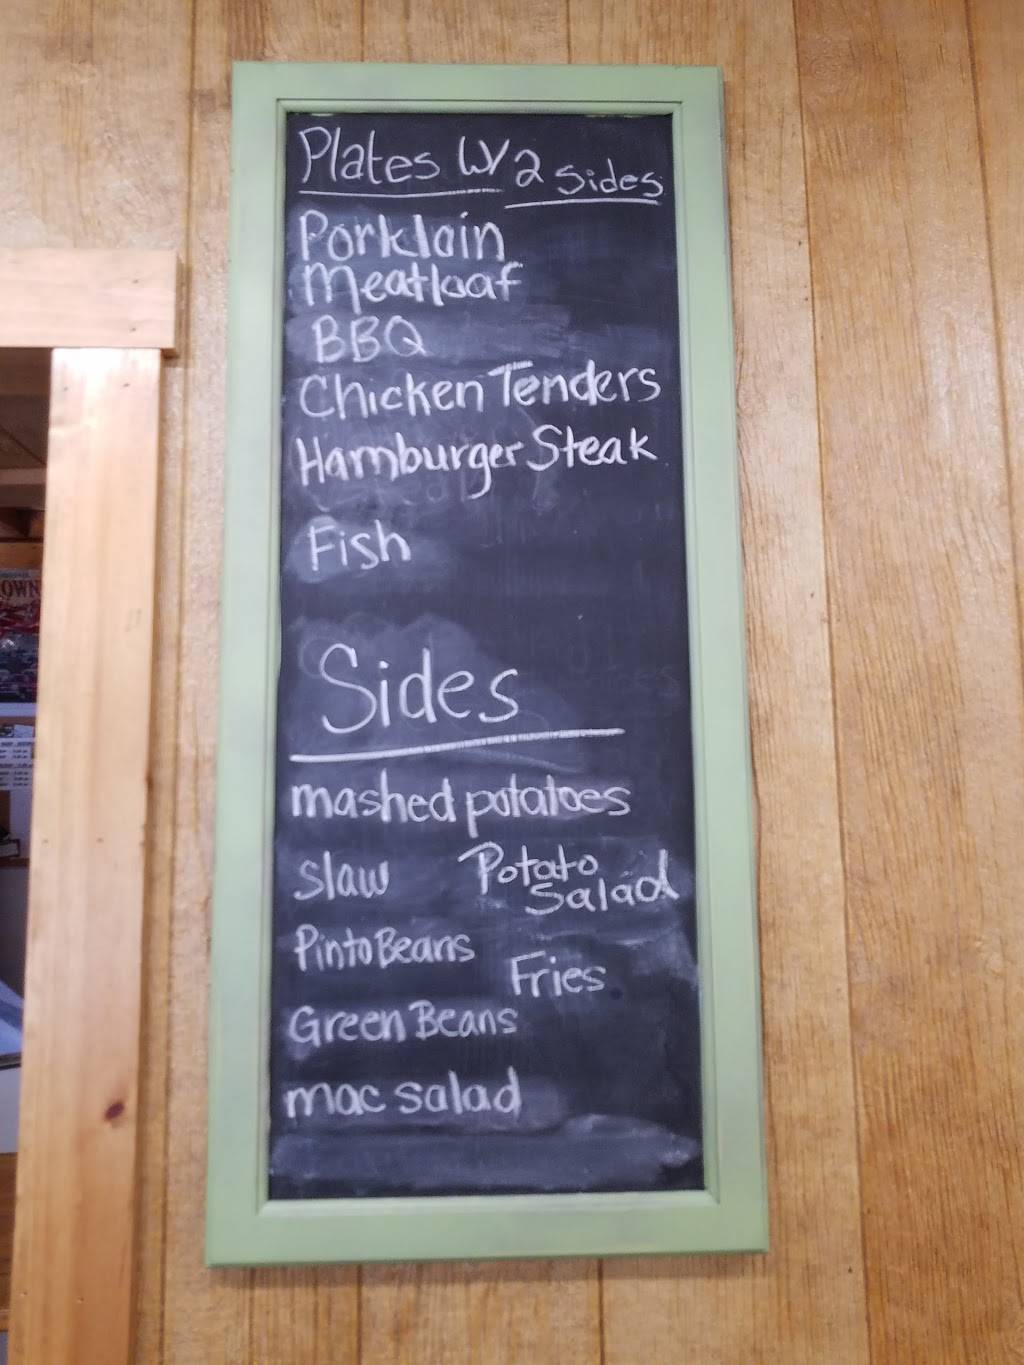 Plates W/ 2 sides
Porkloin
Meatloaf
BBQ
Chicken Tenders
Hamburger Steak
Fish
Sides
mashed potatoes
slaw
Potato
Salad
Pinto Beans
Fries
Green Beans
mac salad
OWN